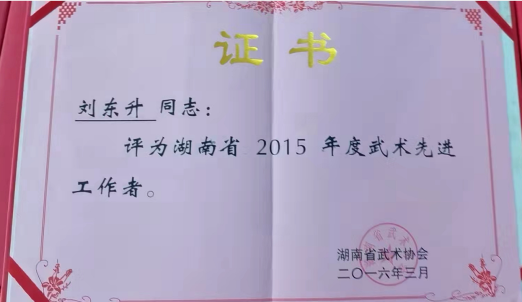 证书
刘东升 同志：
评为湖南省 2015 年度武术先进
工作者。
湖南省武术协会
二〇一六年三月